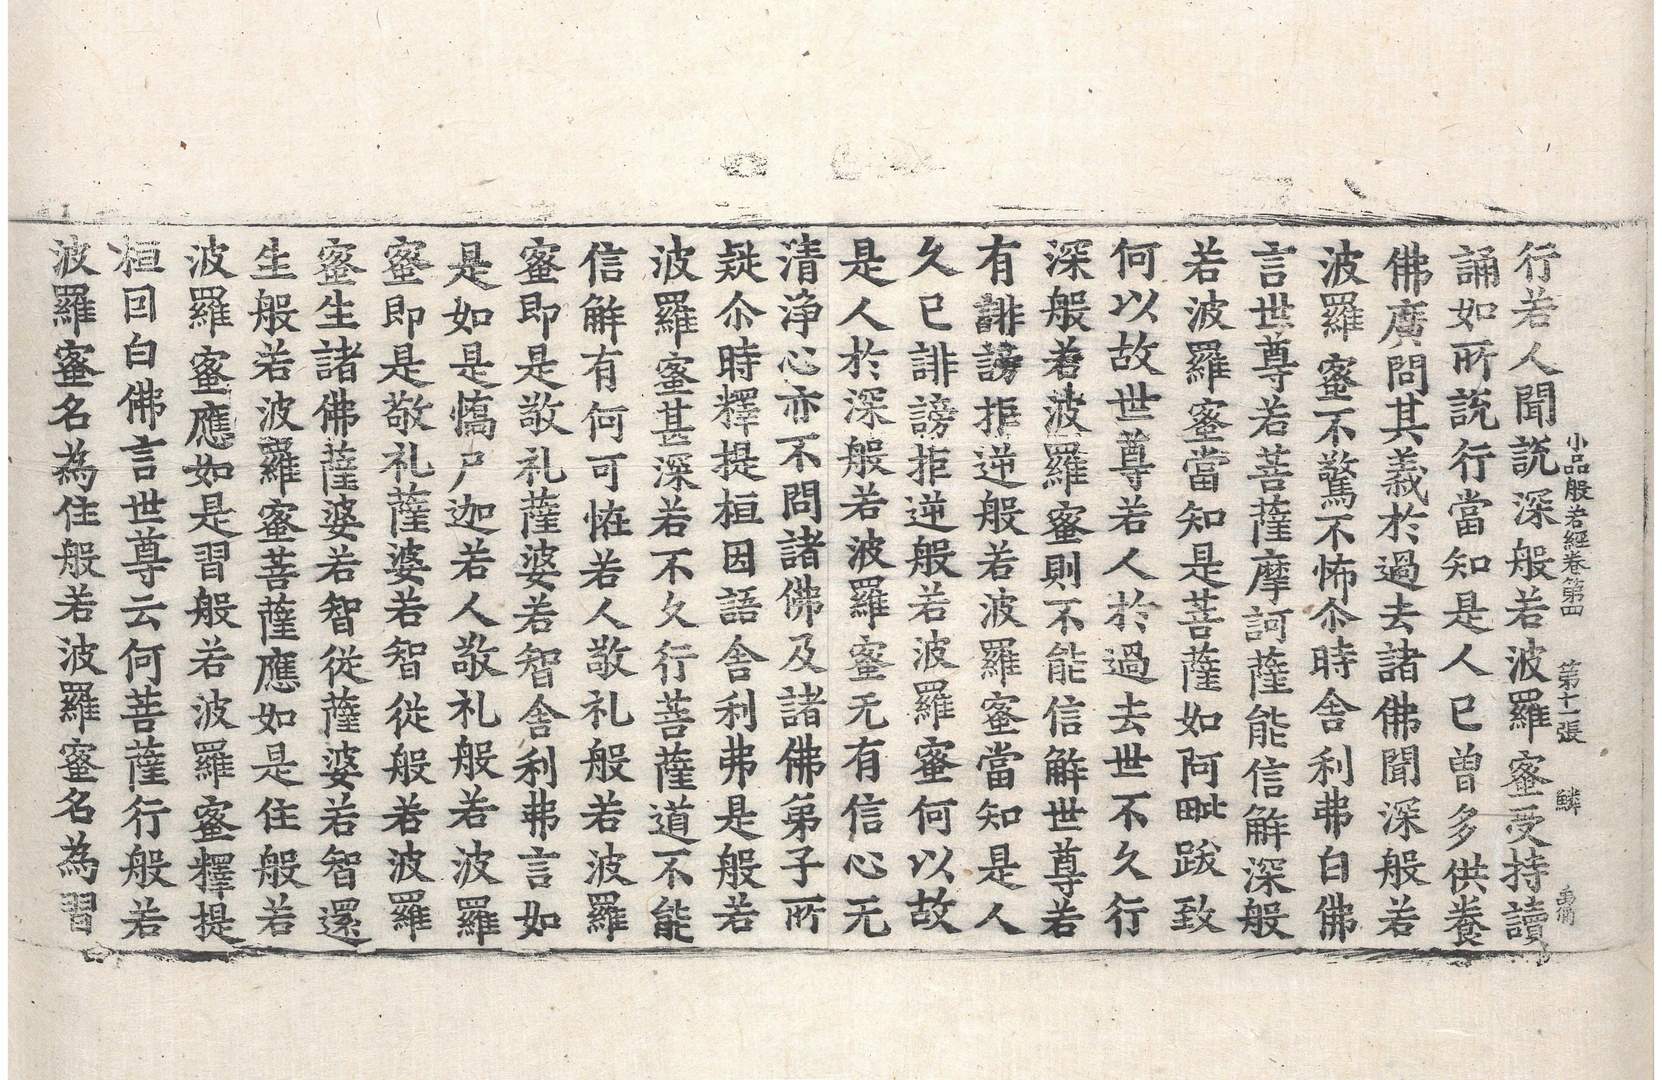 小品般若經卷第四　第十一張　鱗
行若人聞說深般若波羅蜜受持讀
誦如所說行當知是人已曾多供養
佛廣問其義於過去諸佛聞深般若
波羅蜜不驚不怖尒時舍利弗白佛
言世尊若菩薩摩訶薩能信解深般
若波羅蜜當知是菩薩如阿毗跋致
何以故世尊若人於過去世不久行
深般若波羅蜜則不能信解世尊若
有誹謗拒逆般若波羅蜜當知是人
久已誹謗拒逆般若波羅蜜何以故
是人於深般若波羅蜜无有信心无
清淨心亦不問諸佛及諸佛弟子所
疑尒時釋提桓因語舍利弗是般若
波羅蜜甚深若不久行菩薩道不能
信解有何可恠若人敬礼般若波羅
蜜即是敬礼薩婆若智舍利弗言如
是如是憍尸迦若人敬礼般若波羅
蜜即是敬礼薩婆若智從般若波羅
蜜生諸佛薩婆若智從薩婆若智還
生般若波羅蜜菩薩應如是住般若
波羅蜜應如是習般若波羅蜜釋提
桓因白佛言世尊云何菩薩行般若
波羅蜜名為住般若波羅蜜名為習